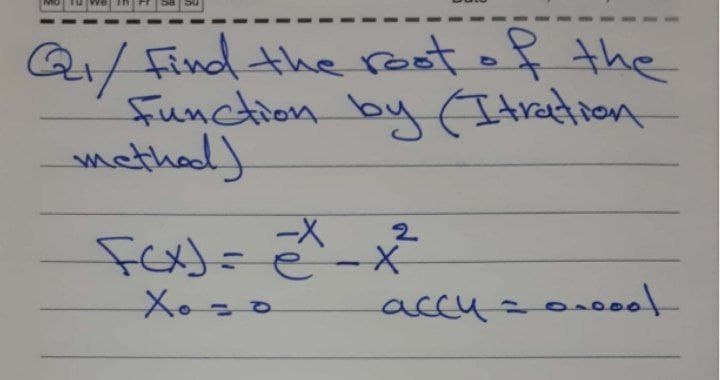 Mo Tu We Th Fr Sa Su
Q1/ Find the root of the
Function by (Itration
method)
F(x) = e^-x - x^2
X0 = 0 accu = 0.0001